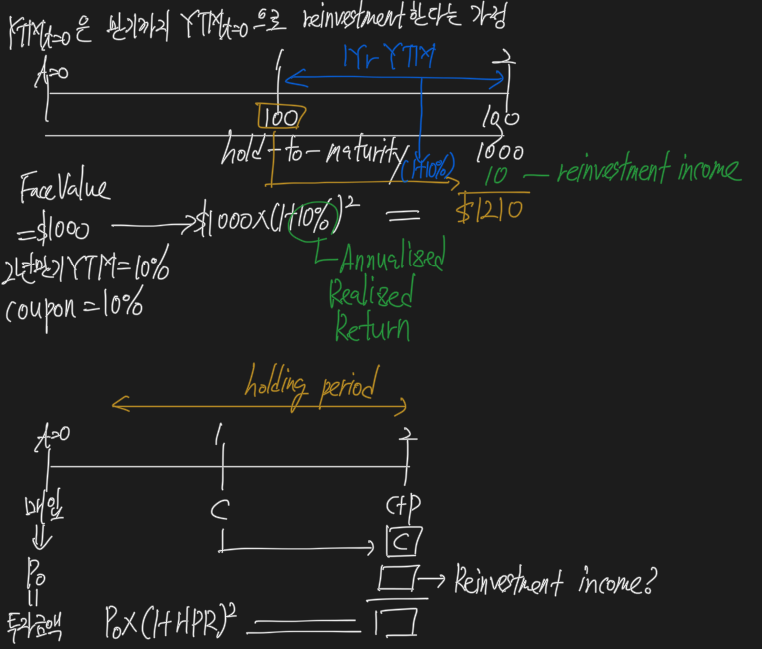 YTM t=0 은 만기까지 YTM t=0 으로 reinvestment한다는 가정
1Yr YTM
t=0 1 2
100 100
hold-to-maturity 1000
(1+10%) 10 — reinvestment income
$1210
Face Value
=$1000 → $1000×(1+10%)² =
2년만기 YTM=10%
coupon=10%
Annualized
Realized
Return
holding period
t=0 1 2
매입 C C+P
C
P₀ → Reinvestment income?
=
투자금액 P₀×(1+HPR)² =